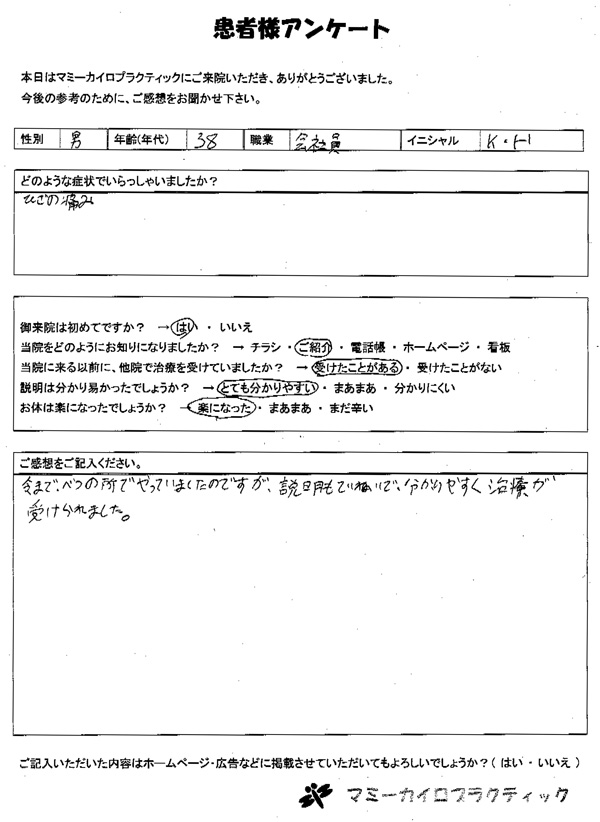 患者様アンケート
本日はマミーカイロプラクティックにご来院いただき、ありがとうございました。
今後の参考のために、ご感想をお聞かせ下さい。
性別 男 年齢(年代) 38 職業 会社員 イニシャル K・H
どのような症状でいらっしゃいましたか？
ひざの痛み
御来院は初めてですか？ → はい ・ いいえ
当院をどのようにお知りになりましたか？ → チラシ ・ ご紹介 ・ 電話帳 ・ ホームページ ・ 看板
当院に来る以前に、他院で治療を受けていましたか？ → 受けたことがある ・ 受けたことがない
説明は分かり易かったでしょうか？ → とても分かりやすい ・ まあまあ ・ 分かりにくい
お体は楽になったでしょうか？ → 楽になった ・ まあまあ ・ まだ辛い
ご感想をご記入ください。
今まで、べつの所でやっていましたのですが、説明もていねいで、分かりやすく治療が
受けられました。
ご記入いただいた内容はホームページ・広告などに掲載させていただいてもよろしいでしょうか？( はい ・ いいえ )
マミーカイロプラクティック